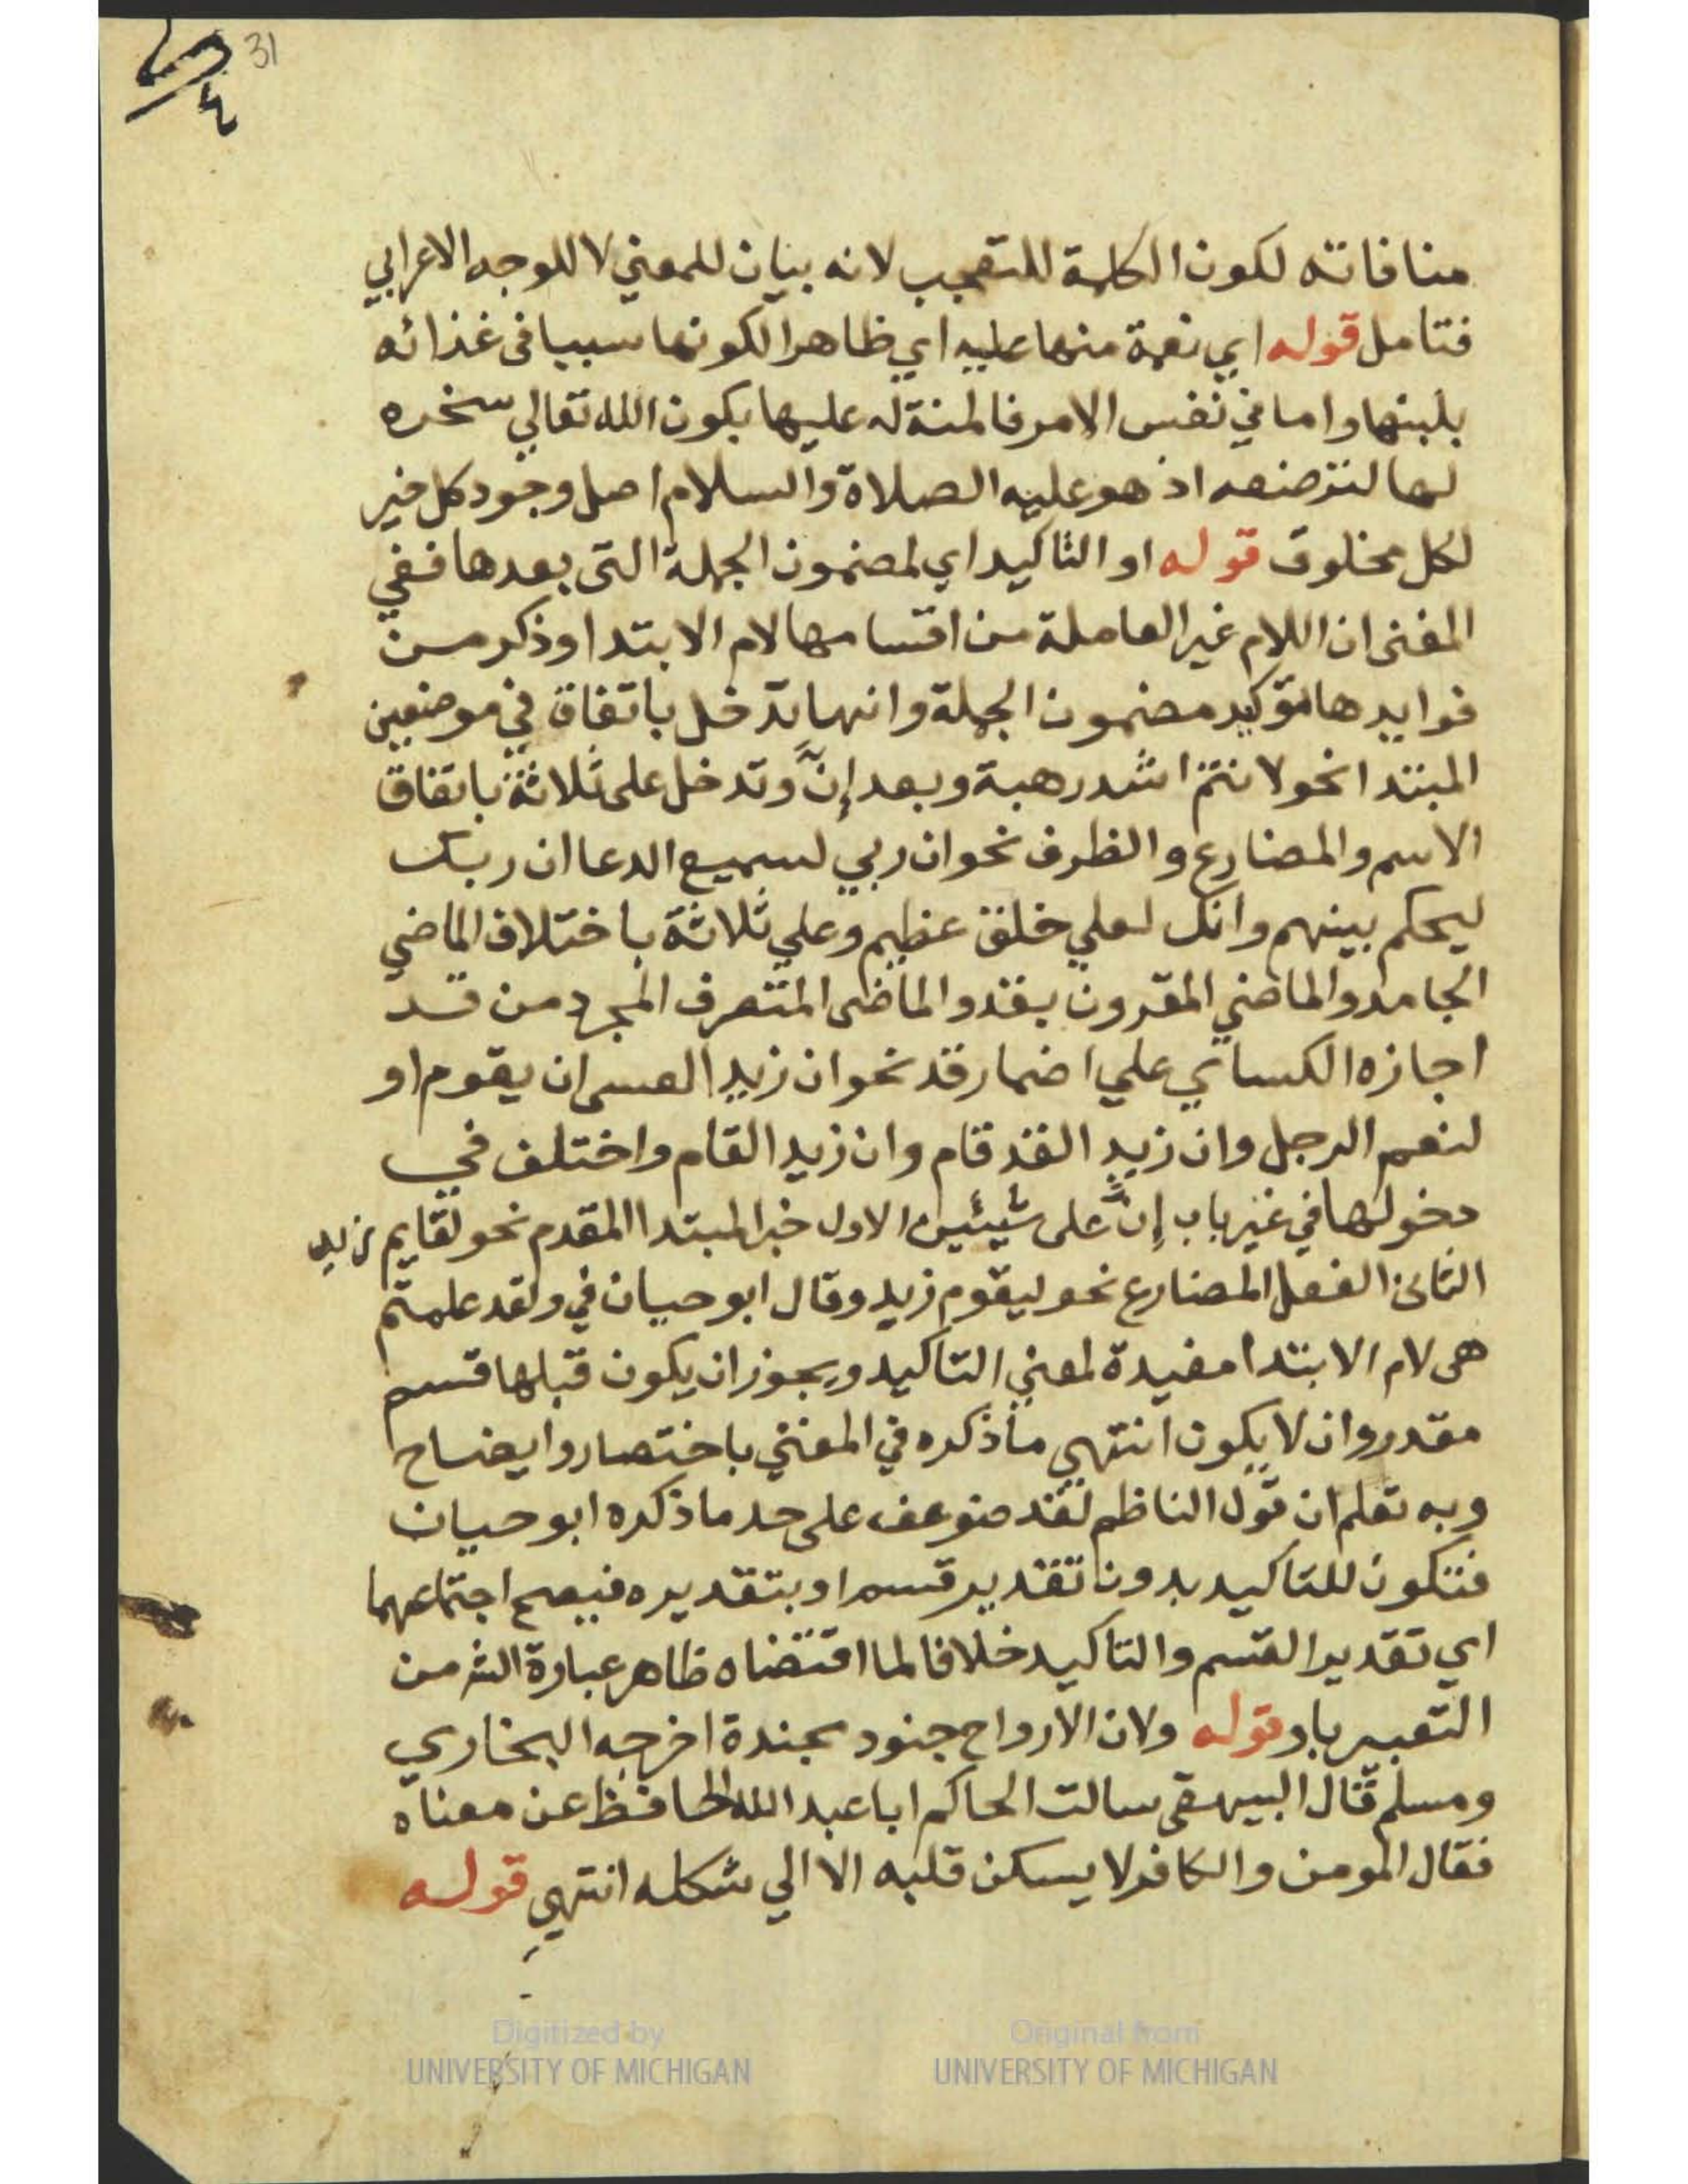 31
منافاته لكون الكلمة للتعجب لانه بيان للمعني لا للوجه الاعرابي
فتامل قوله اي نعمة منها عليه اي ظاهرا لكونها سببا فى غذائه
بلبنها واما في نفس الامر فالمنة له عليها بكون الله تعالي سخره
لها لترضعه اذ هو عليه الصلاة والسلام اصل وجود كل خير
لكل مخلوق قوله او التاكيد اي لمضمون الجملة التى بعدها ففي
المغنى ان اللام غير العاملة من اقسامها لام الابتدا وذكر من
فوايدها توكيد مضمون الجملة وانها تدخل باتفاق في موضعين
المبتدا نحو لانتم اشد رهبة وبعد إنّ وتدخل على ثلاثة باتفاق
الاسم والمضارع والظرف نحو ان ربي لسميع الدعا ان ربك
ليحكم بينهم وانك لعلي خلق عظيم وعلي ثلاثة باختلاف الماضي
الجامد والماضي المقرون بقد والماضى المتصرف المجرد من قد
اجازه الكساي علي اضمار قد نحو ان زيدا لعسى ان يقوم او
لنعم الرجل وان زيدا لقد قام وان زيدا لقام واختلف في
دخولها في غير باب إنّ على شيئين الاول خبر المبتدا المقدم نحو لقايم زيد
الثانى الفعل المضارع نحو ليقوم زيد وقال ابو حيان في ولقد علمتم
هى لام الابتدا مفيدة لمعني التاكيد ويجوز ان يكون قبلها قسم
مقدر وان لا يكون انتهي ما ذكره في المغني باختصار وايضاح
وبه تعلم ان قول الناظم لقد ضوعف على حد ما ذكره ابو حيان
فتكون للتاكيد بدون تقدير قسم او بتقديره فيصح اجتماعهما
اي تقدير القسم والتاكيد خلافا لما اقتضاه ظاهر عبارة الش من
التعبير باو قوله ولان الارواح جنود مجندة اخرجه البخاري
ومسلم قال البيهقى سالت الحاكم ابا عبد الله الحافظ عن معناه
فقال المومن والكافر لا يسكن قلبه الا الي شكله انتهي قوله
Digitized by
UNIVERSITY OF MICHIGAN
Original from
UNIVERSITY OF MICHIGAN